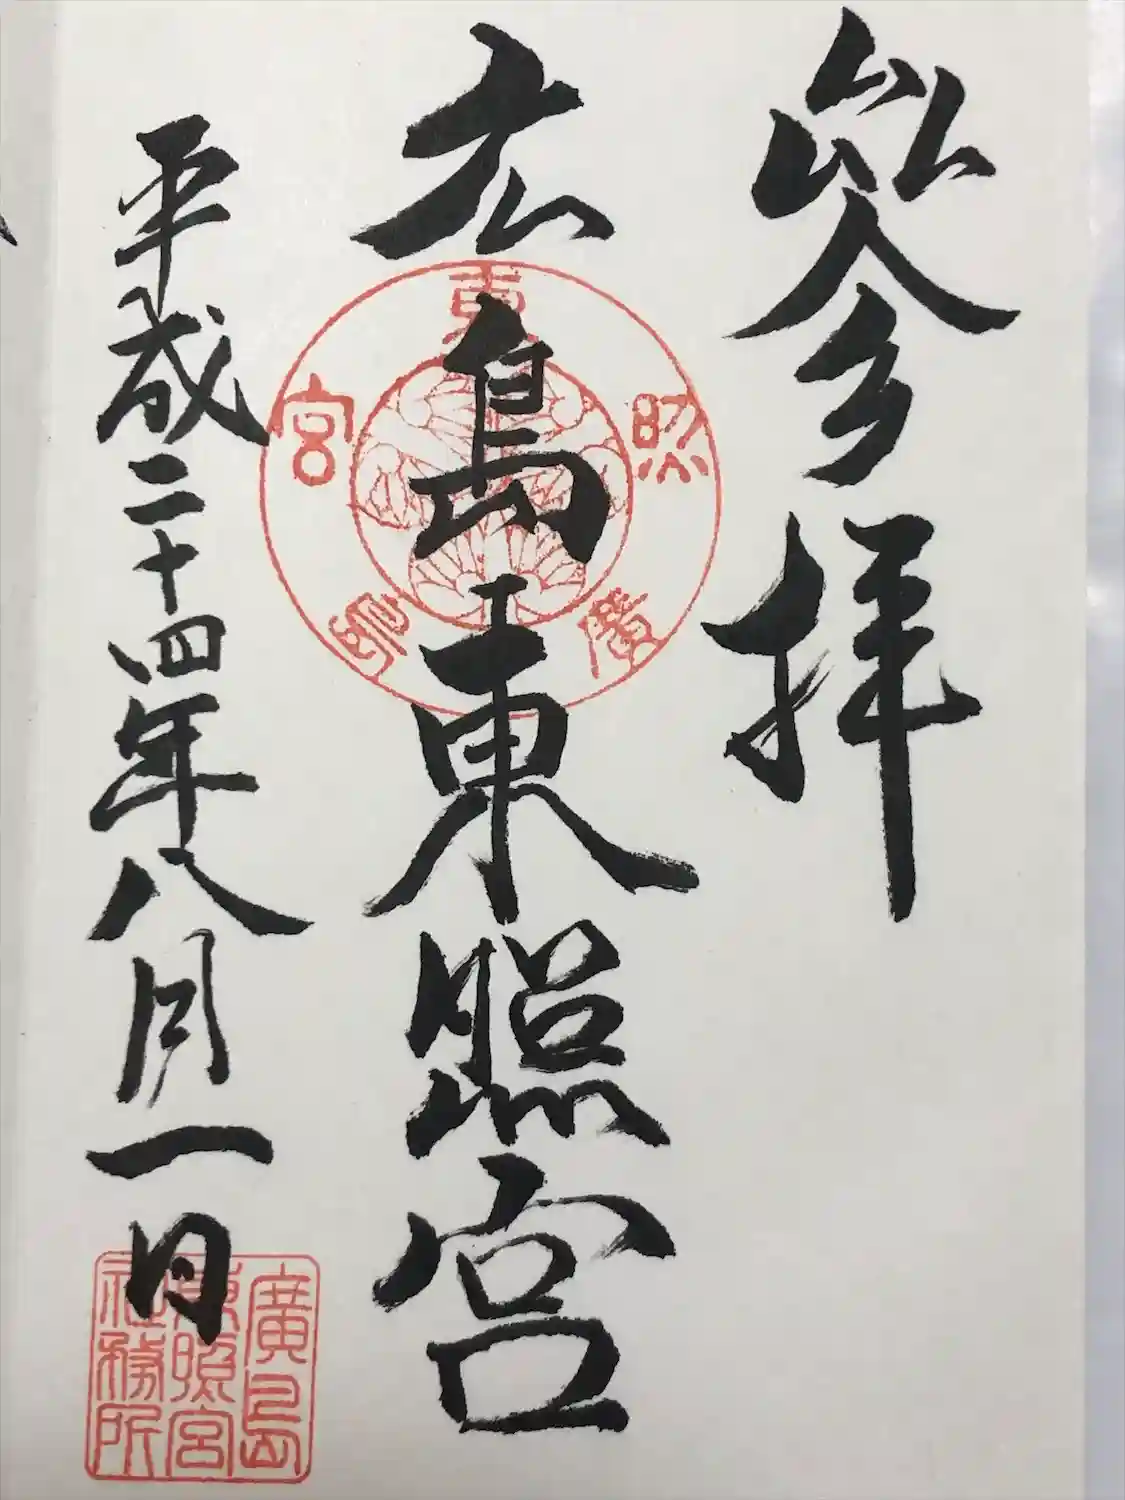 參拝
広島東照宮
平成二十四年八月一日
東照廣島宮
廣島
東照宮
社務所